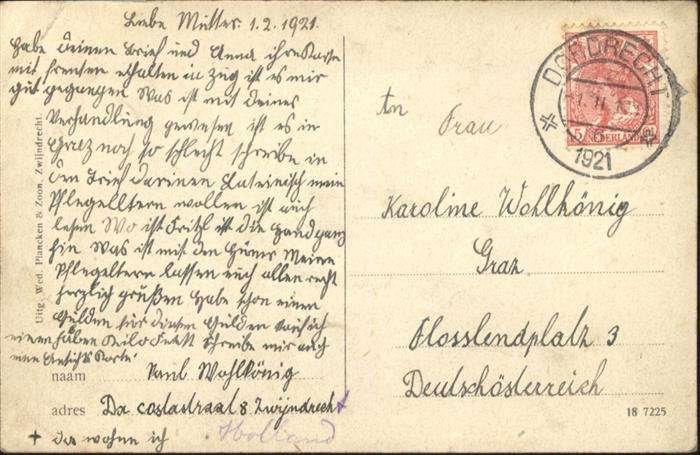 Liebe Mutter. 1.2.1921.
Habe Deinen Brief und Anna ihre Karte
mit Freuden erhalten in Zug ist es mir
gut gegangen Was ist mit Deiner
Verhandlung gewesen ist es in
Graz noch so schlecht schreibe in
den Brief darinen Lateinisch meine
Pflegeltern wollen ist auch
lesen Wo ist Fritzl ist die Hand ganz
hin. Was ist mit den Hüner Meine
Pflegeltern lassen euch allen recht
herzlich grüßen Habe schon einen
Gulden für diesen Gulden
einen halben Kilo Fett Schreibe mir auch
eine Ansichts Karte
naam Paul Wohlkönig
adres Da costastraat 8 Zwijndrecht +
+ da wohne ich Holland
Uitg. Wed. Plancken & Zoon, Zwijndrecht.
DORDRECHT
1921
5
NEDERLAND
An
Frau
Karoline Wohlkönig
Graz
Flosslendplatz 3
Deutschösterreich
18 7225